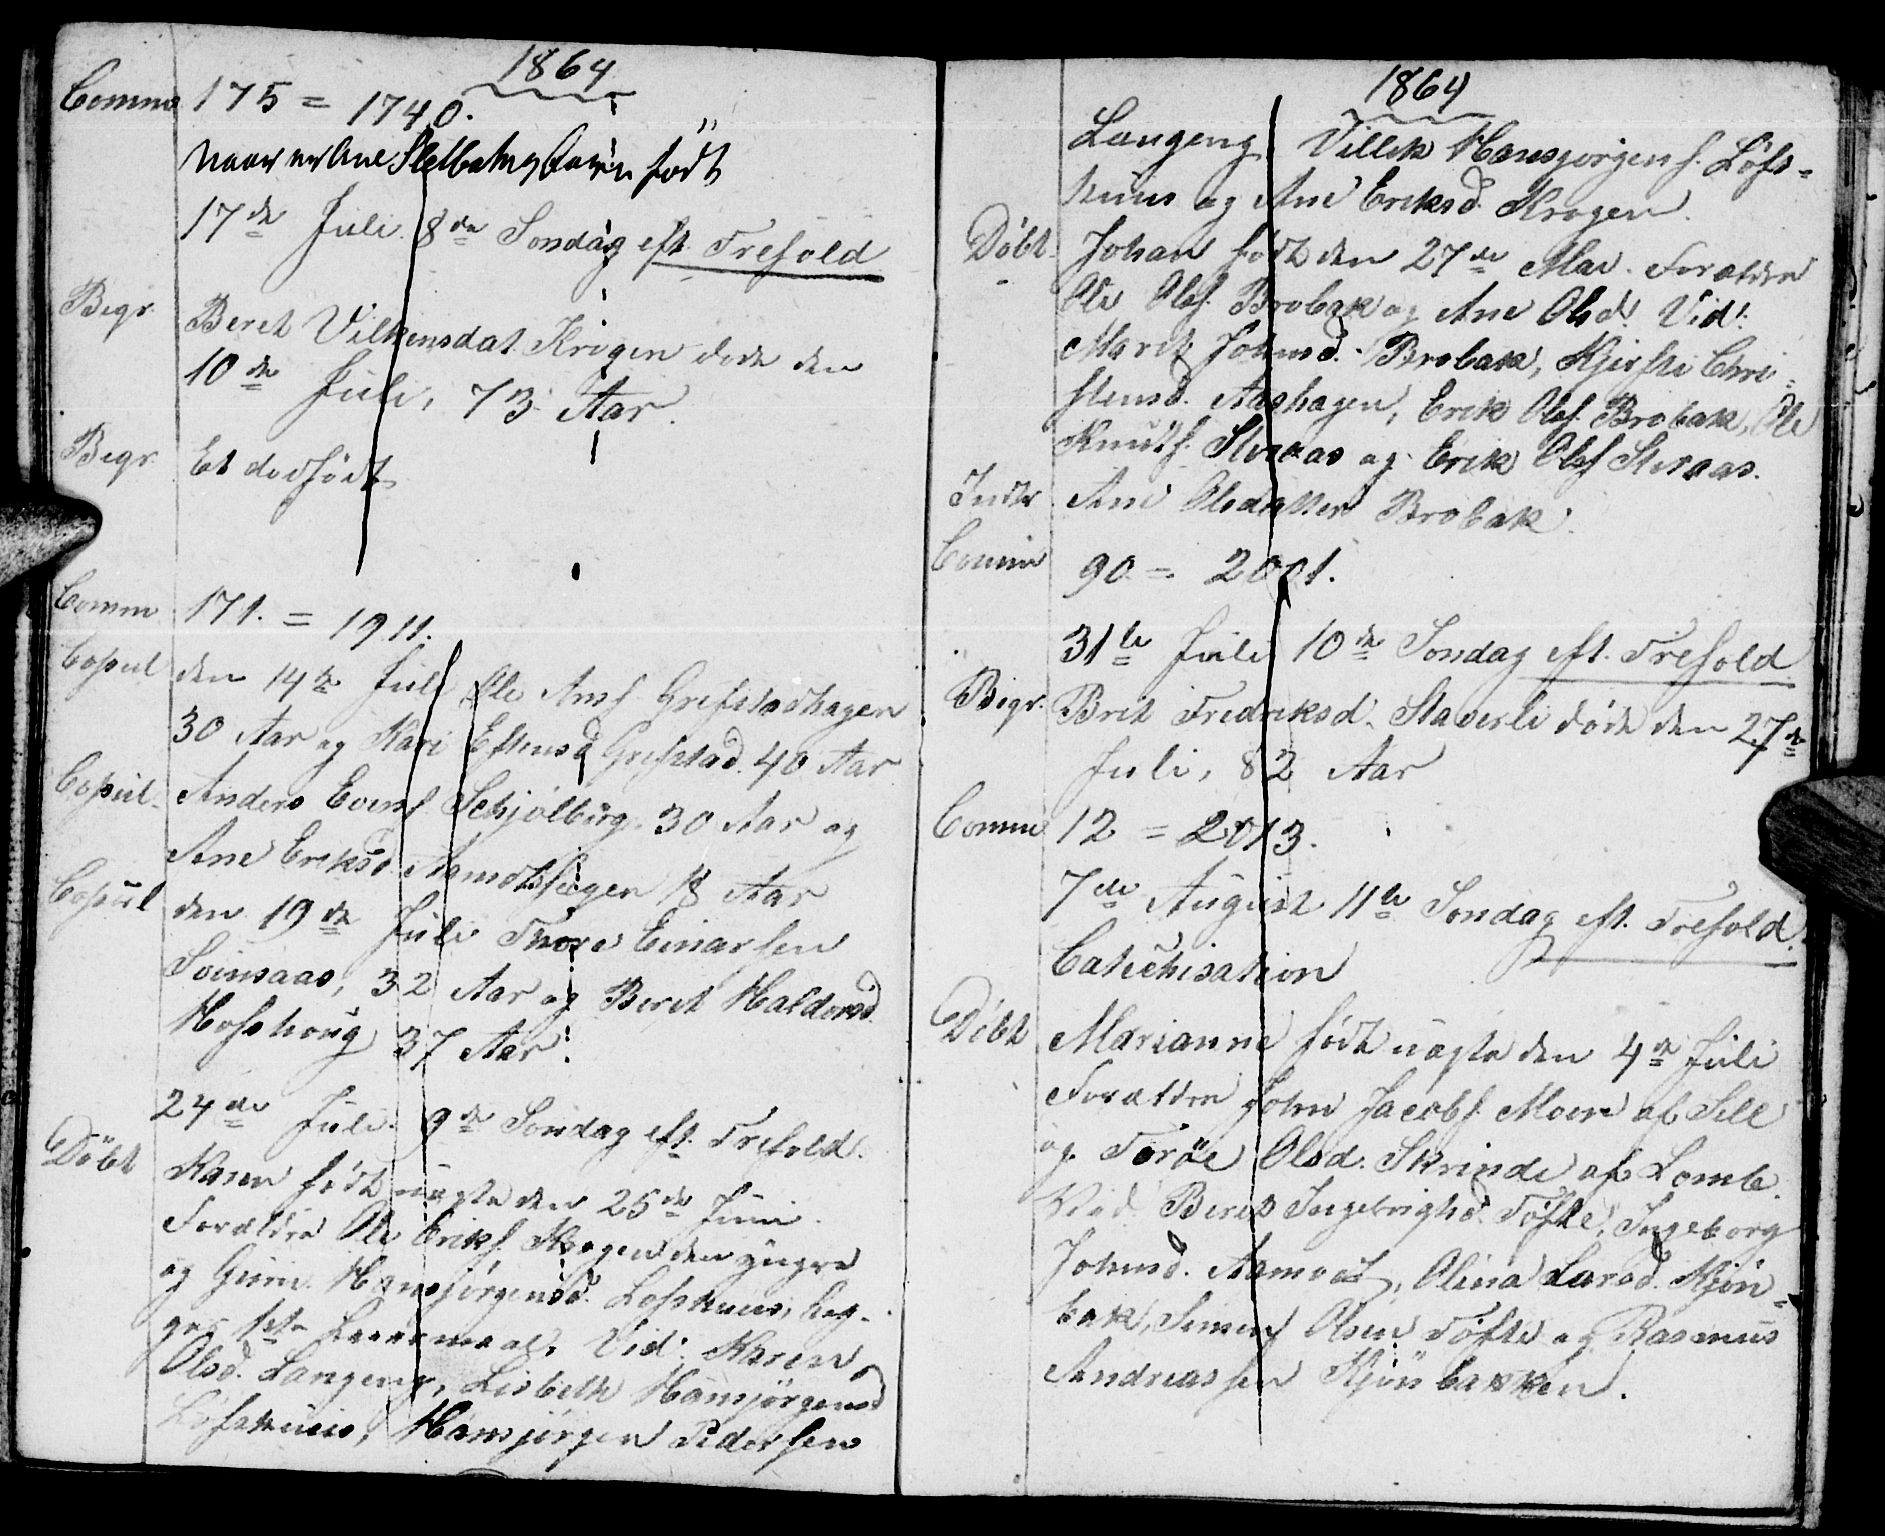 1864
Comm 175 = 1740.
naar er Ane født
17de Juli. 8de Søndag eft. Trefold
Begr. Beret Vilkensdat. Krogen døde den
10de Juli, 73 Aar.
Begr. Et dødfødt
Comm 171. = 1911.
Copul den 14de Juli Ole Ans. Grefstadhagen
30 Aar og Kari Estensd. Grefstad. 40 Aar
Copul. Anders Evens. Schjølberg. 30 Aar og
Ane Eriksd. Aamotshagen 18 Aar
Copul den 19de Juli Thore Einarsen
Svinsaas, 32 Aar og Beret Haldorsd.
Hofshoug 37 Aar.
24de Juli. 9de Søndag eft. Trefold.
Døbt Karen født uægte den 25de Juni.
Forældre Ole Eriks. Krogen den yngre
og Guru Hansjørgensd. Løfshuus, beg-
ges 1ste Leiermaal. Vid: Karen
Olsd. Langeng, Lisbeth Hansjørgensd
Løfshuus, Hansjørgen Pedersen
1864
Langeng, Villek Hansjørgens. Løfs-
huus og Ane Eriksd. Krogen.
Døbt. Johan født den 27de Mai. Forældre
Ole Ols. Brobak og Ane Olsd. Vid:
Marit Johnsd. Brobak, Kjersti Chri-
stensd. Aashagen, Erik Ols. Brobak, Ole
Knuts. Steraas og Erik Ols. Steraas.
Indtr Ane Olsdatter Brobak.
Comm 90 = 2001.
31te Juli 10de Søndag eft. Trefold
Begr. Brit Fredriksd. Staverli døde den 27de
Juli, 82 Aar
Comm 12 = 2013.
7de August 11te Søndag eft. Trefold.
Catechisation
Døbt Marianne født uægte den 4de Juli
Forældre John Jacobs. Moen af Sell
og Torøe Olsd. Skrinde af Lomb.
Vid Beret Ingebrigtsd. Tøfte, Ingeborg
Johnsd. Aamodt, Olina Larsd. Kjøn-
bak, Simen Olsen Tøfte og Rasmus
Andreassen Kjønbakken.